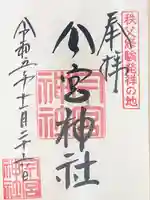 秩父修験発祥の地
奉拝
今宮神社
令和五年十一月二十一日